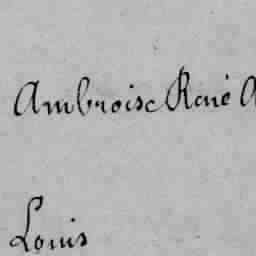 Ambroise René A
Louis